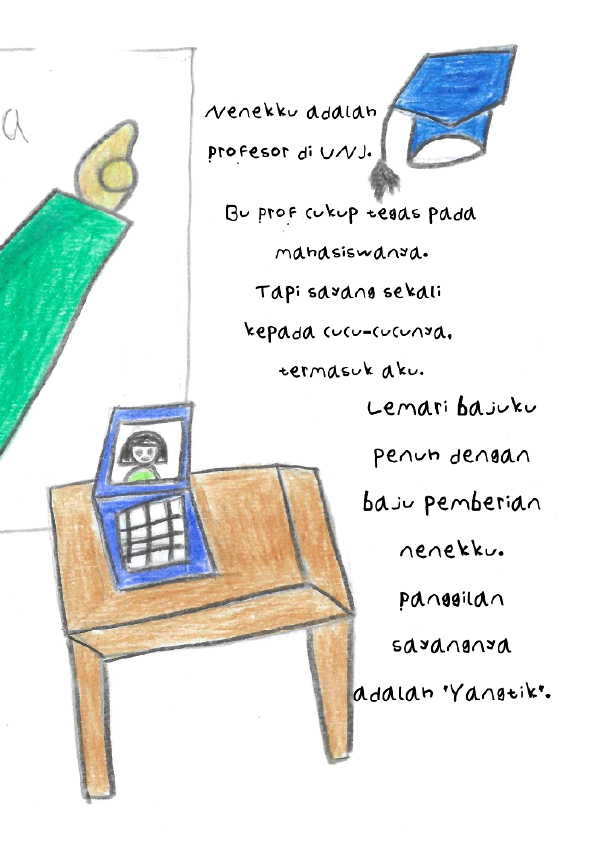 a
Nenekku adalah
profesor di UNJ.
Bu prof cukup tegas pada
mahasiswanya.
Tapi sayang sekali
kepada cucu-cucunya,
termasuk aku.
Lemari bajuku
penuh dengan
baju pemberian
nenekku.
panggilan
sayangnya
adalah "Yangtik".